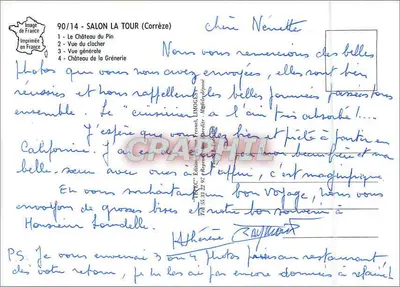 Image de France
Imprimée en France
90/14 - SALON LA TOUR (Corrèze)
1 - Le Château du Pin
2 - Vue du clocher
3 - Vue générale
4 - Château de la Grénerie
chère Nénette
Nous vous remercions des belles
photos que vous nous avez envoyées, elles sont bien
réussies et nous rappellent des belles journées passées tous
ensemble. Le "cuisinier" a l'air très absorbé !...
J'espère que vous êtes prête à partir en
Californie. J'a mon beau frère et ma
belle-sœur avec nous et c'est magnifique
En vous souhaitant un bon voyage, nous vous
envoyons de grosses bises et notre bon souvenir à
Monsieur
Thérèse Raymond
PS. Je vous enverrai 3 ou 4 photos prises au restaurant
dès votre retour, je ne les ai pas encore données à refaire !
CRAPHIL